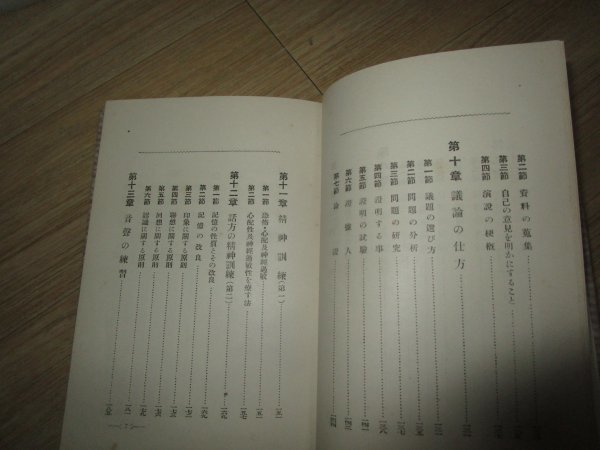 第二節 資料の蒐集
第三節 自己の意見を明かにすること
第四節 演説の梗概
第十章 議論の仕方
第一節 議題の選び方
第二節 問題の分析
第三節 問題の研究
第四節 證明する事
第五節 證明の試驗
第六節 證據人
第七節 論證
第十一章 精神訓練(第一)
第一節 恐怖・心配及神經過敏
第二節 心配性及神經過敏性を療す法
第十二章 話方の精神訓練(第二)
第一節 記憶の性質とその改良
第二節 記憶の改良
第三節 印象に關する原則
第四節 聯想に關する原則
第五節 回想に關する原則
第六節 認識に關する原則
第十三章 音聲の練習